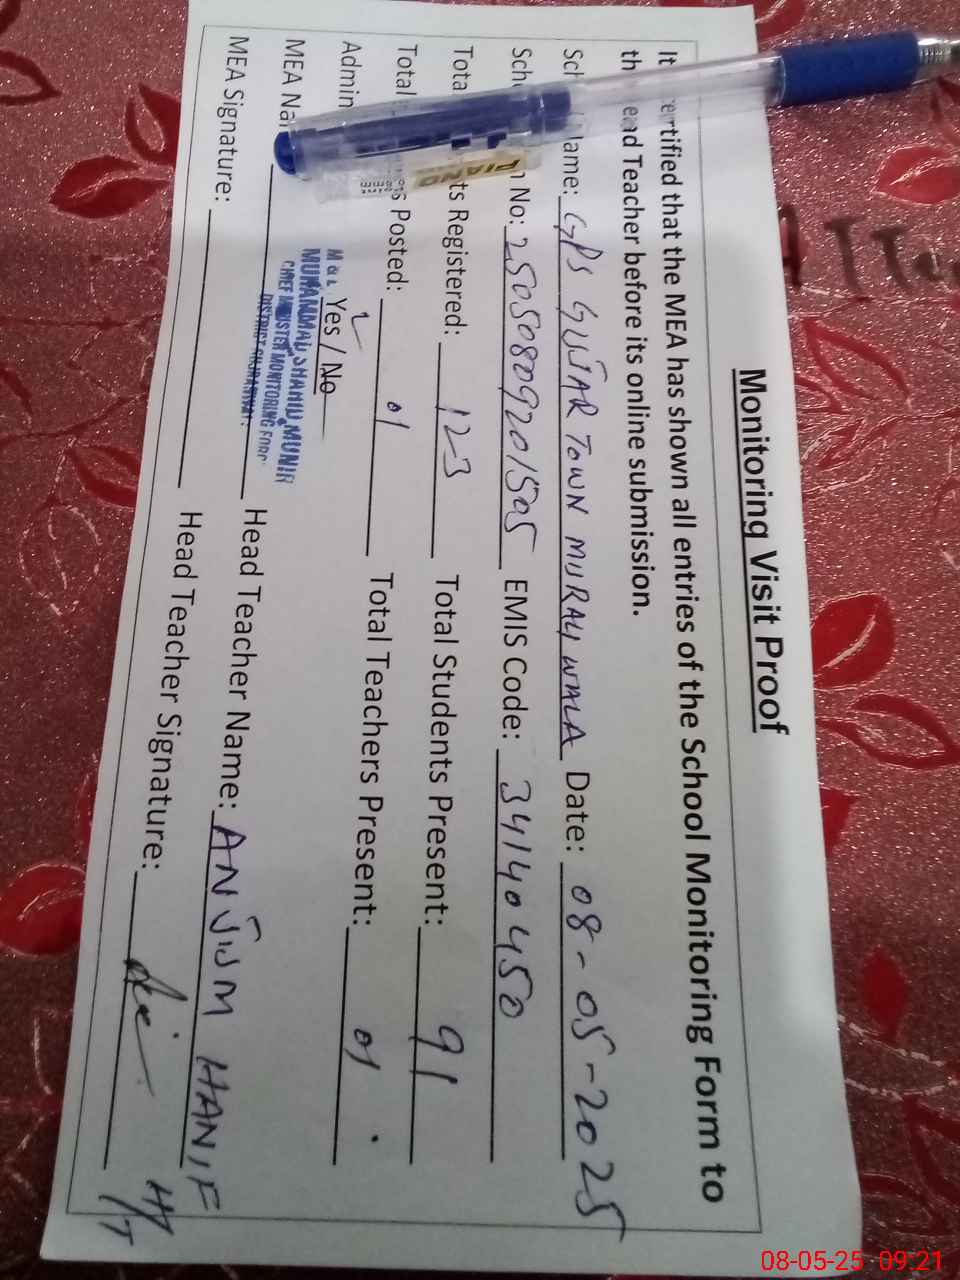 Monitoring Visit Proof
It ertified that the MEA has shown all entries of the School Monitoring Form to
th ead Teacher before its online submission.
Sch Name: GPS GUJJAR TOWN MURALI WALA Date: 08-05-2025
Sch n No: 25050809201505 EMIS Code: 34140450
Tota ts Registered: 123 Total Students Present: 91
Total s Posted: 01 Total Teachers Present: 01
Admin Yes / No
MEA Na Head Teacher Name: ANJUM HANIF
MEA Signature: Head Teacher Signature: H/T
M & E
MUHAMMAD SHAHID MUNIR
CHIEF MINISTER MONITORING FORC
PIANO
08-05-25 09:21